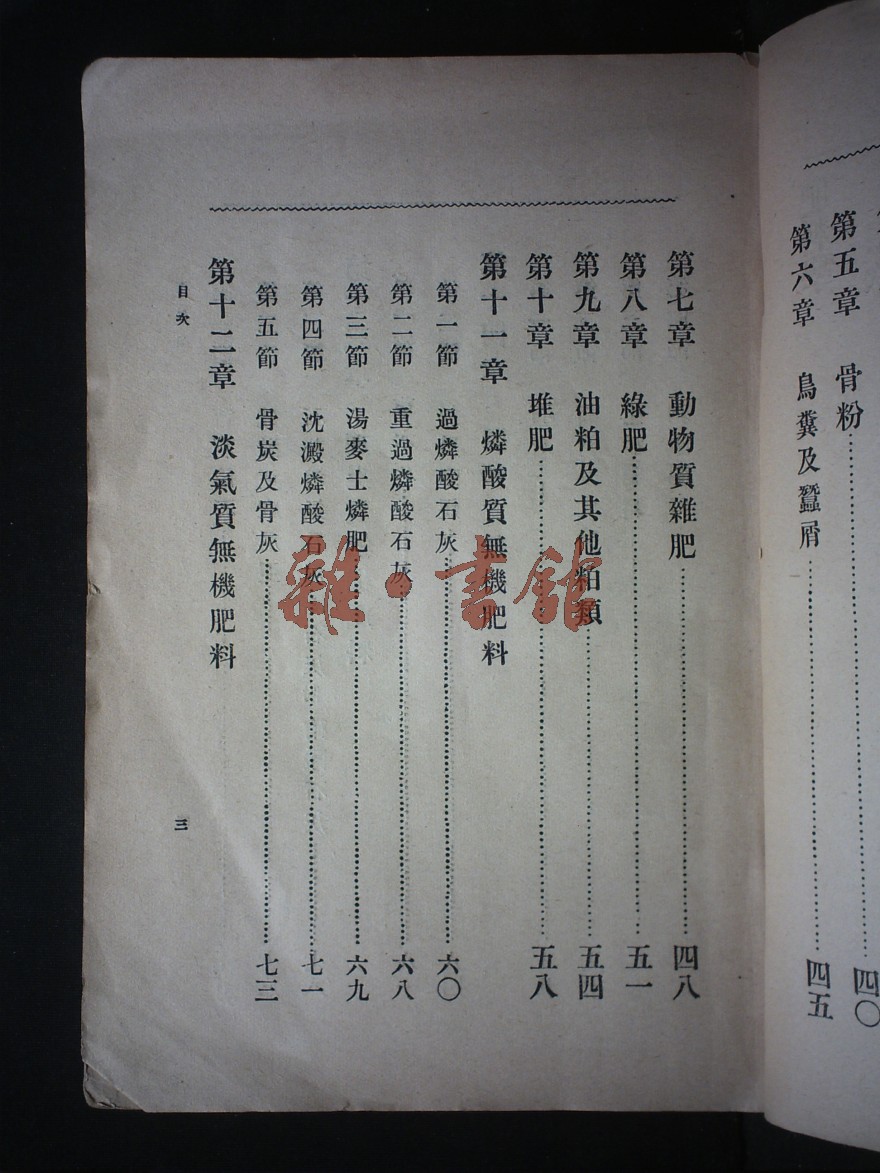 第五章　骨粉……四〇
第六章　鳥糞及蠶屑……四五
第七章　動物質雜肥……四八
第八章　綠肥……五一
第九章　油粕及其他粕類……五四
第十章　堆肥……五八
第十一章　燐酸質無機肥料
第一節　過燐酸石灰……六〇
第二節　重過燐酸石灰……六八
第三節　湯麥士燐肥……六九
第四節　沈澱燐酸石灰……七一
第五節　骨炭及骨灰……七三
第十二章　淡氣質無機肥料
目次
三
雜·書館